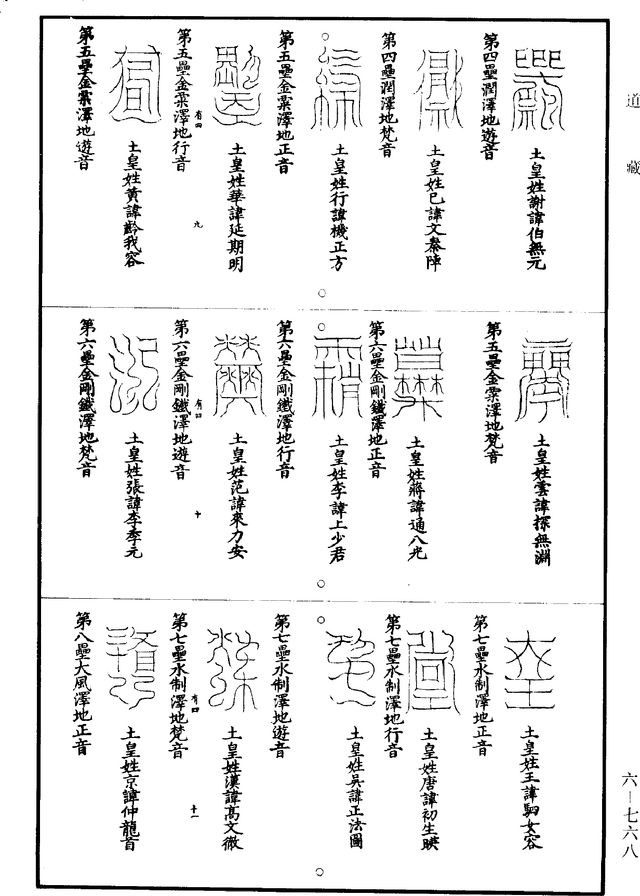 道藏
土皇姓謝諱伯無元
第四壘潤澤地遊音
土皇姓已諱文秦陣
第四壘潤澤地梵音
土皇姓行諱機正方
第五壘金粟澤地正音
土皇姓華諱延期明
有四
九
第五壘金粟澤地行音
土皇姓黃諱齡我容
第五壘金粟澤地遊音
土皇姓雲諱探無淵
第五壘金粟澤地梵音
土皇姓蔣諱通八光
第六壘金剛鐵澤地正音
土皇姓李諱上少君
第六壘金剛鐵澤地行音
土皇姓范諱來力安
有四
十
第六壘金剛鐵澤地遊音
土皇姓張諱李季元
第六壘金剛鐵澤地梵音
土皇姓王諱駟女容
第七壘水制澤地正音
土皇姓唐諱初生映
第七壘水制澤地行音
土皇姓吳諱正法圖
第七壘水制澤地遊音
土皇姓漢諱高文徹
有四
十一
第七壘水制澤地梵音
土皇姓京諱仲龍首
第八壘大風澤地正音
六—七六八